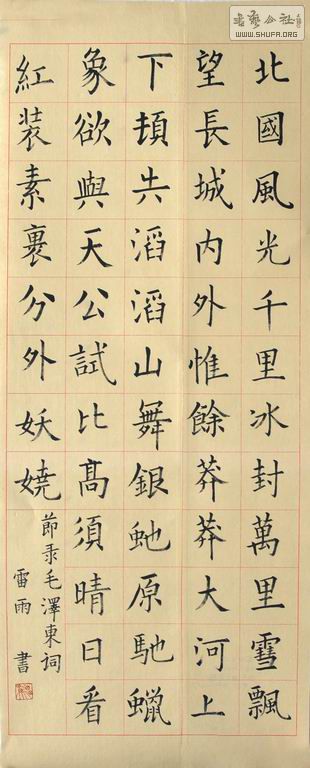 北國風光千里冰封萬里雪飄
望長城内外惟餘莽莽大河上
下頓失滔滔山舞銀虵原馳蠟
象欲與天公試比髙須晴日看
紅裝素裹分外妖嬈
節录毛澤東詞
雷雨書
書藝公社
WWW.SHUFA.ORG